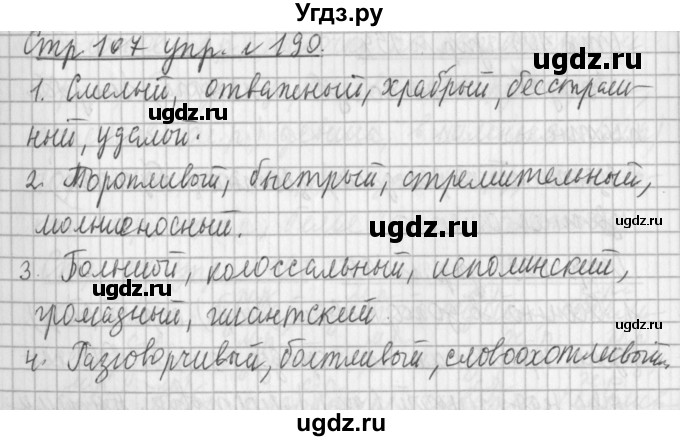 Угдз.ру
Стр 107 упр. № 190.
ugdz.ru
1. Смелый, отважный, храбрый, бесстраш-
ный, удалой.
ugdz.ru ugdz.ru
2. Торопливый, быстрый, стремительный,
молниеносный.
ugdz.ru ugdz.ru
3. Большой, колоссальный, исполинский,
ugdz.ru
громадный, гигантский.
ugdz.ru
4. Разговорчивый, болтливый, словоохотливый.
ugdz.ru ugdz.ru
ugdz.ru